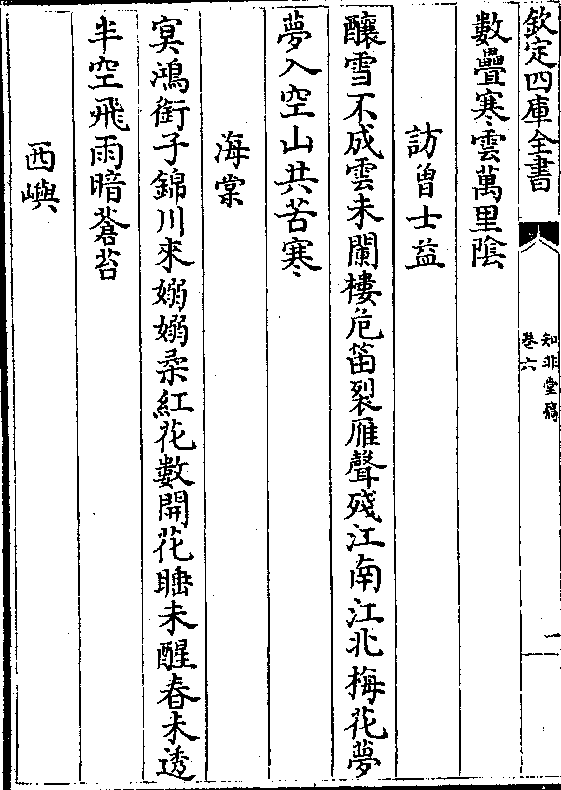 欽定四庫全書
知非堂稿
卷六
一
數疊寒雲萬里陰
訪曾士益
釀雪不成雲未闌樓危笛裂雁聲殘江南江北梅花夢
夢入空山共苦寒
海棠
冥鴻銜子錦川来嫋嫋柔紅花數開花睡未醒春未透
半空飛雨暗蒼苔
西嶼